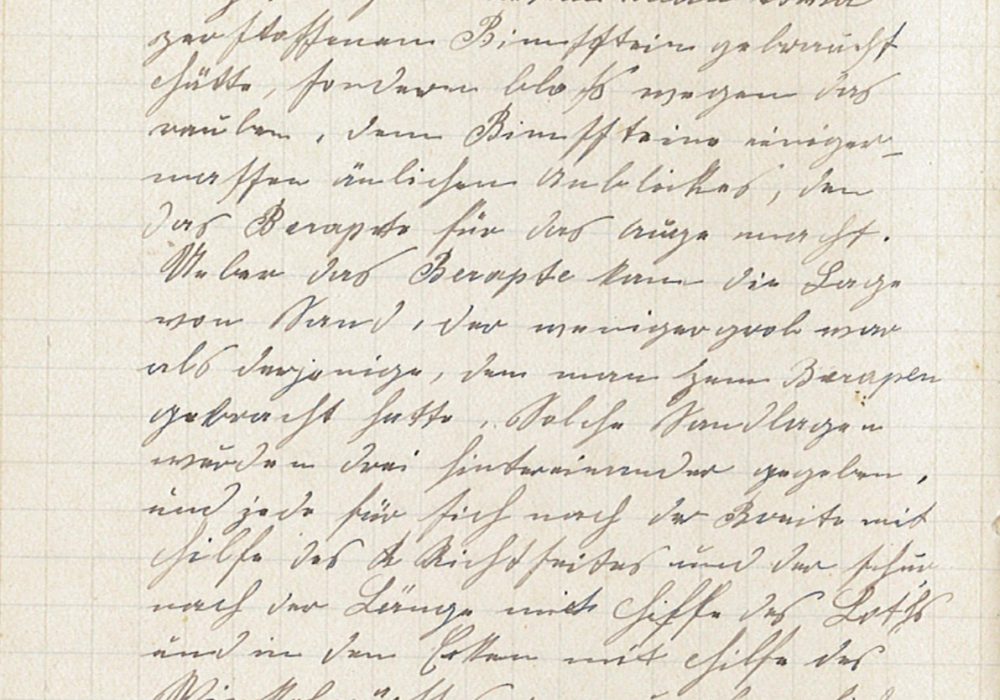 zerstossenen Bimsstein gebraucht
hätte, sondern bloss wegen das
rauhen, dem Bimssteine einiger-
massen änlichen Anblickes, den
das Berapte für das Auge macht.
Ueber das Berapte kam die Lage
von Sand, der weniger grob war
als derjenige, den man zum Berapen
gebracht hatte. Solche Sandlagen
wurden drei hintereinander gegeben,
und jede für sich nach der Breite mit
Hilfe des Richtscites und der Schur
nach der Länge mit Hilfe des Loths
und in den Ecken mit Hilfe des